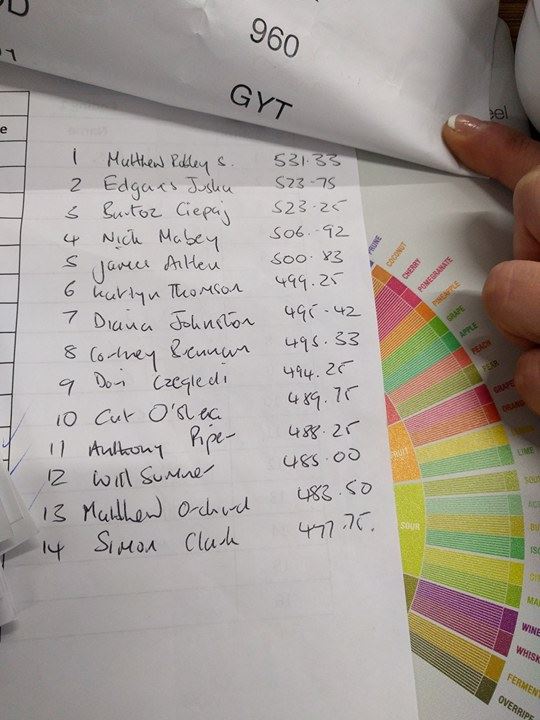 960
GYT
1 Matthew S. 531.33
2 Edgars Juska 523-75
3 Bartoz 523-25
4 Nick Mabey 506.-92
5 James Aitken 500.83
6 Kaitlyn Thomson 499.25
7 Diana Johnston 495-42
8 Cortney Brennan 495.33
9 Dori Czegledi 494.25
10 Cat O'shea 489.75
11 Anthony Piper 488.25
12 Will Sumner 485.00
13 Matthew Orchard 483.50
14 Simon Clark 477.75.
PRUNE
COCONUT
CHERRY
POMEGRANATE
PINEAPPLE
GRAPE
APPLE
PEACH
PEAR
GRAPE
ORANG
LIME
SOUR
WINE
WHISK
FERMEN
OVERRIPE